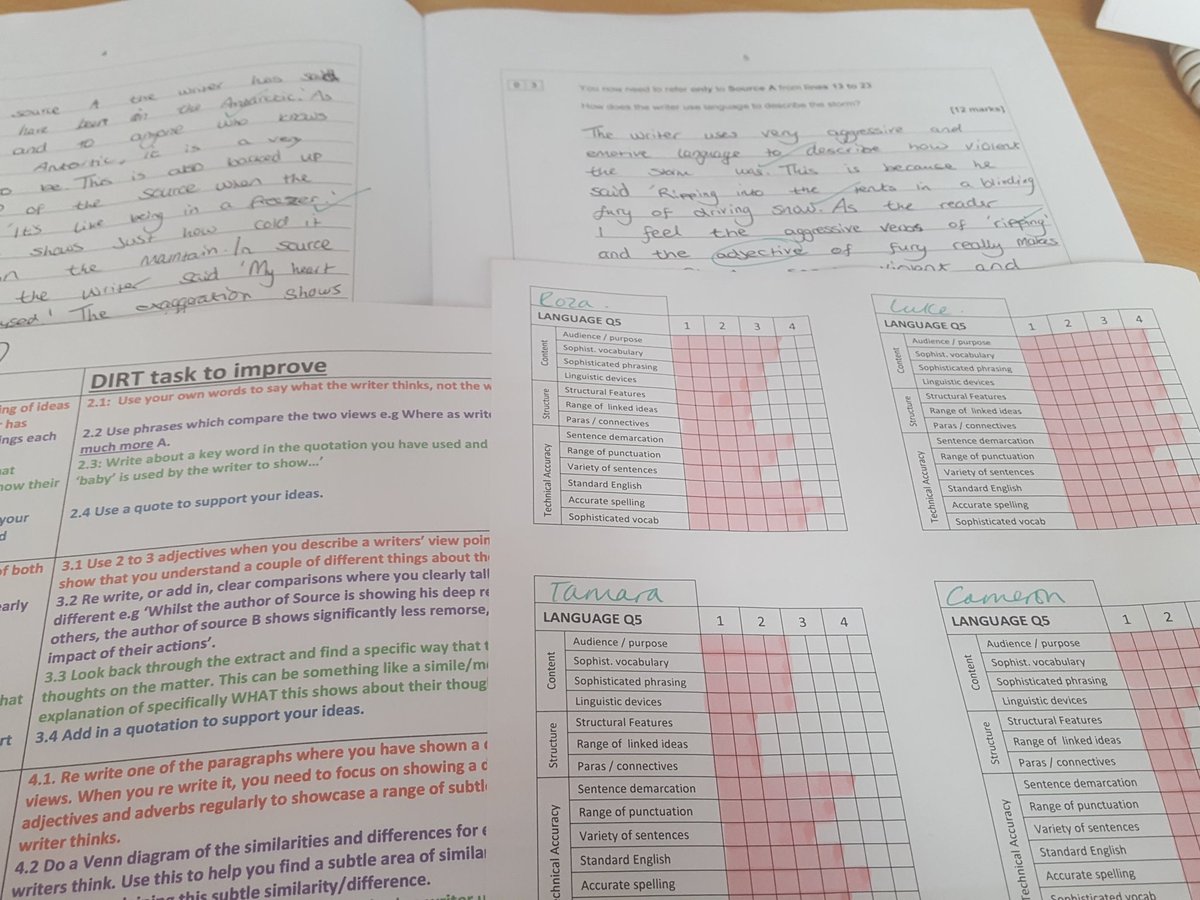 4
source A the writer has said
have been in the Antarctic.' As
and to anyone who knows
Antartic, it is a very
be. This is also backed up
of the source when the
'It's like being in a freezer.'
shows just how cold it
the Mamtain. In source
the writer said 'My heart
The exaggeration shows
5
0 3
You now need to refer only to Source A from lines 13 to 23
How does the writer use language to describe the storm?
[12 marks]
The writer uses very aggressive and
emotive language to describe how violent
the storm was. This is because he
said 'Ripping into the tents in a blinding
fury of driving snow. As the reader
I feel the aggressive verbs of 'ripping'
and the adjective of fury really makes
violent and
DIRT task to improve
ing of ideas
has
ings each
hat
how their
your
d
2.1: Use your own words to say what the writer thinks, not the w
2.2 Use phrases which compare the two views e.g Where as write
much more A.
2.3: Write about a key word in the quotation you have used and
'baby' is used by the writer to show...'
2.4 Use a quote to support your ideas.
of both
early
hat
rt
3.1 Use 2 to 3 adjectives when you describe a writers' view poin
show that you understand a couple of different things about the
3.2 Re write, or add in, clear comparisons where you clearly tall
different e.g 'Whilst the author of Source is showing his deep re
others, the author of source B shows significantly less remorse,
impact of their actions'.
3.3 Look back through the extract and find a specific way that t
thoughts on the matter. This can be something like a simile/me
explanation of specifically WHAT this shows about their thoug
3.4 Add in a quotation to support your ideas.
4.1. Re write one of the paragraphs where you have shown a
views. When you re write it, you need to focus on showing a d
adjectives and adverbs regularly to showcase a range of subtl
writer thinks.
4.2 Do a Venn diagram of the similarities and differences for e
writers think. Use this to help you find a subtle area of similar
this subtle similarity/difference.
Roza.
LANGUAGE Q5 1 2 3 4
Content
Audience / purpose
Sophist. vocabulary
Sophisticated phrasing
Linguistic devices
Structure
Structural Features
Range of linked ideas
Paras / connectives
Technical Accuracy
Sentence demarcation
Range of punctuation
Variety of sentences
Standard English
Accurate spelling
Sophisticated vocab
Luke.
LANGUAGE Q5 1 2 3 4
Content
Audience / purpose
Sophist. vocabulary
Sophisticated phrasing
Linguistic devices
Structure
Structural Features
Range of linked ideas
Paras / connectives
Technical Accuracy
Sentence demarcation
Range of punctuation
Variety of sentences
Standard English
Accurate spelling
Sophisticated vocab
Tamara
LANGUAGE Q5 1 2 3 4
Content
Audience / purpose
Sophist. vocabulary
Sophisticated phrasing
Linguistic devices
Structure
Structural Features
Range of linked ideas
Paras / connectives
chnical Accuracy
Sentence demarcation
Range of punctuation
Variety of sentences
Standard English
Accurate spelling
Cameron
LANGUAGE Q5 1 2
Content
Audience / purpose
Sophist. vocabulary
Sophisticated phrasing
Linguistic devices
Structure
Structural Features
Range of linked ideas
Paras / connectives
Technical Accuracy
Sentence demarcation
Range of punctuation
Variety of sentences
Standard English
Accurate spelling
Sophisticated vocab